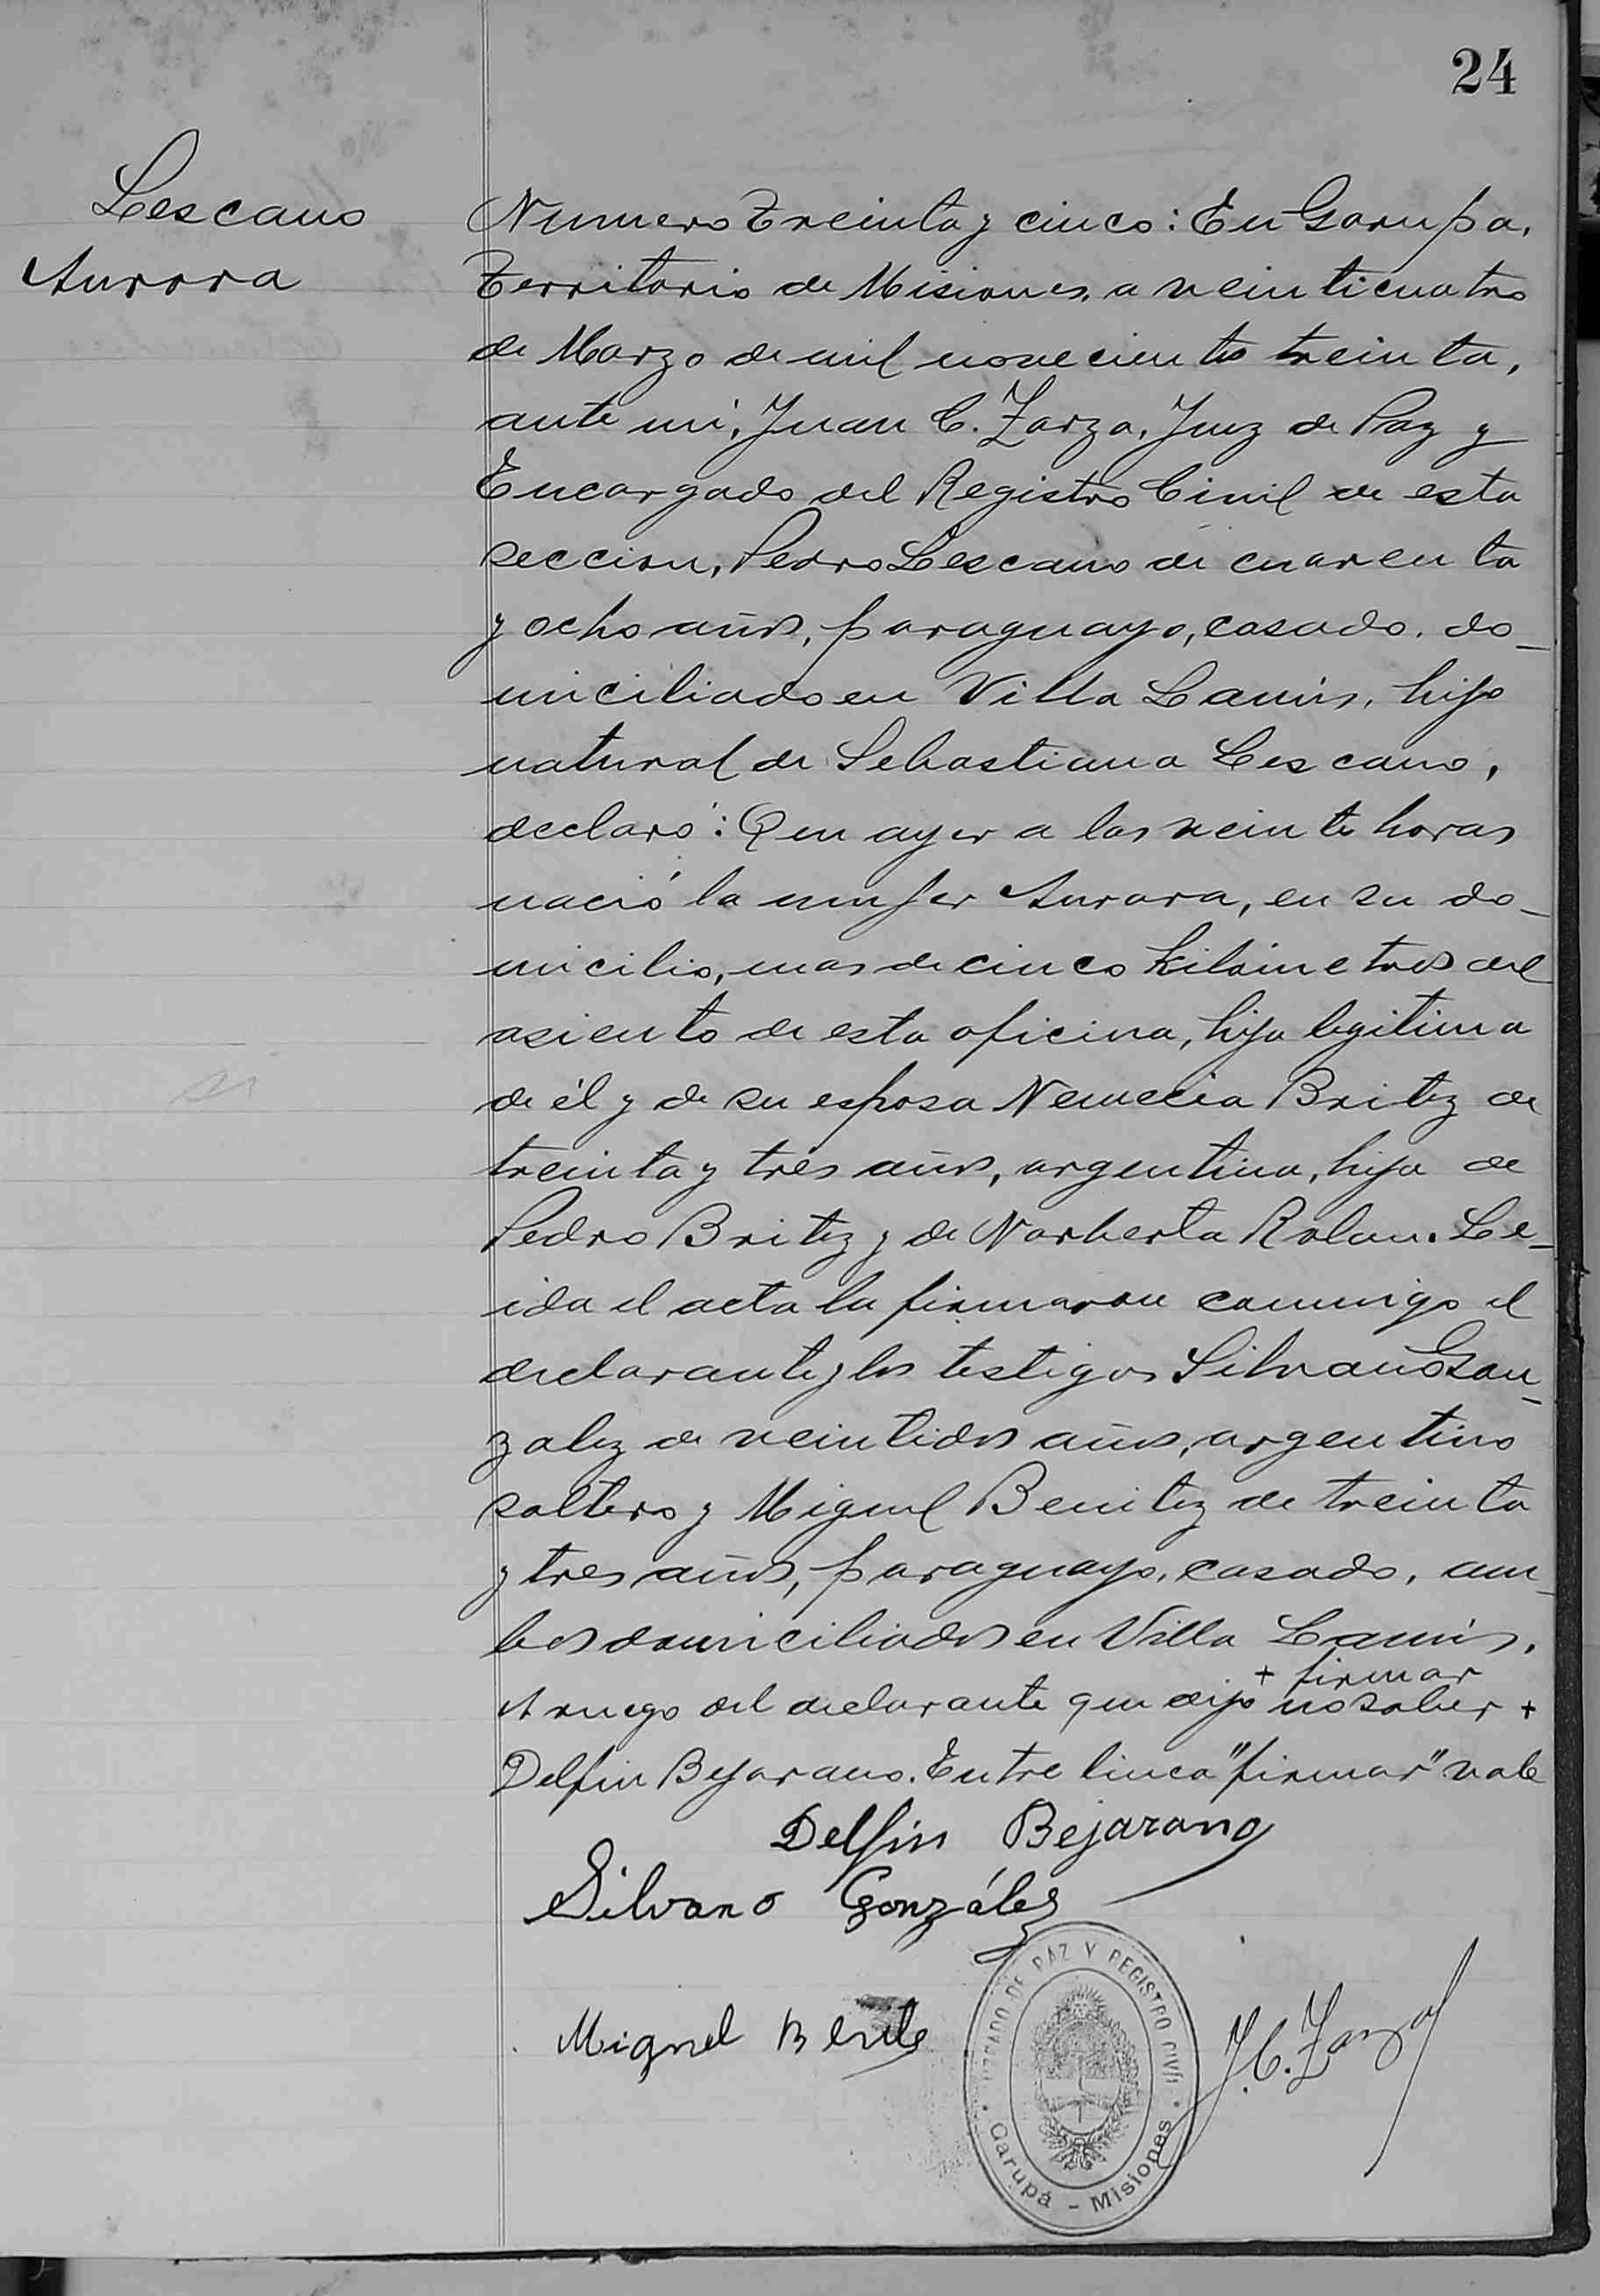 24
Lescano
Aurora
Numero Treinta y cinco: En Garupa,
Territorio de Misiones, a veinticuatro
de Marzo de mil novecientos treinta,
ante mi, Juan C. Zarza, Juez de Paz y
Encargado del Registro Civil de esta
seccion, Pedro Lescano de cuarenta
y ocho años, paraguayo, casado, do-
miciliado en Villa Lanús, hijo
natural de Sebastiana Lescano,
declaró: Que ayer a las veinte horas
nació la mujer Aurora, en su do-
micilio, mas de cinco kilómetros del
asiento de esta oficina, hija legitima
de él y de su esposa Nemecia Britez de
treinta y tres años, argentina, hija de
Pedro Britez y de Norberta Rolan. Le-
ida el acta la firmaron conmigo el
declarante y los testigos Silvano Gon-
zalez de veintidos años, argentino
soltero y Miguel Benitez de treinta
y tres años, paraguayo, casado, am-
bos domiciliados en Villa Lanús.
+ firmar
A ruego del declarante que dijo no saber +
Delfin Bejarano. Entre linea "firmar" vale
Delfin Bejarano
Silvano Gonzáles
Miguel
J.C. Zarza
JUZGADO DE PAZ Y REGISTRO CIVIL
Garupá - Misiones